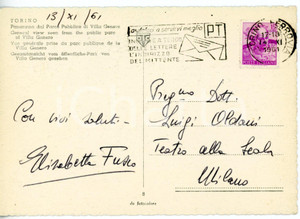 13/XI/61
TORINO
Panorama dal Parco Pubblico di Villa Genero
General view seen from the public park
of Villa Genero
Vue générale prise du parc publique de la
Villa Genero
Gesamtansicht vom öffentliche-Park von
Villa Genero gesehen
PT
LETTERE
L'INDIRIZZO
DEL MITTENTE
TORINO FERROVIA
Con vivi saluti -
Elisabetta Fusco
Pregmo Dott.
Luigi Oldani
Teatro alla Scala
Milano